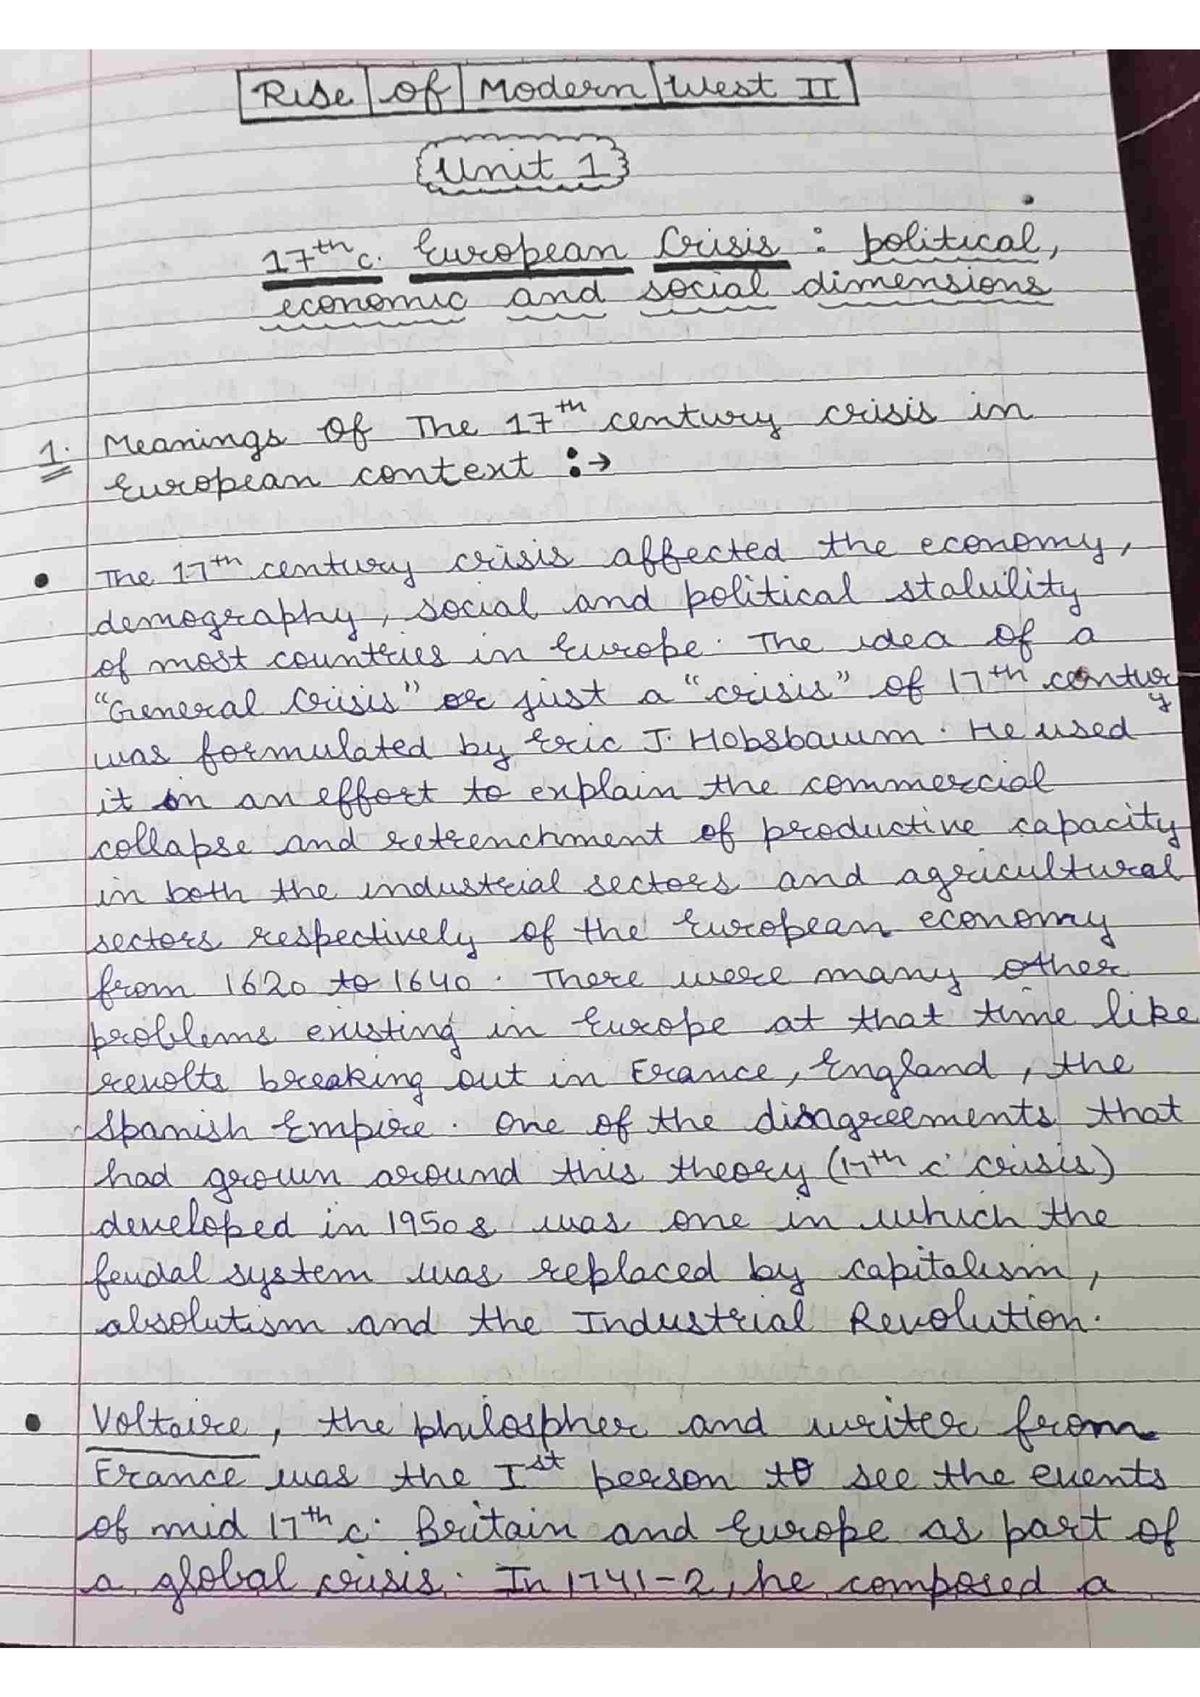 Rise of Modern West II
Unit 1
17th c. European Crisis : political,
economic and social dimensions
1. Meanings Of The 17th century crisis in
European context :→
• The 17th century crisis affected the economy,
demography, social and political stability
of most countries in Europe. The idea of a
"General Crisis" or just a "crisis" of 17th century
was formulated by Eric J. Hobsbawm. He used
it in an effort to explain the commercial
collapse and retrenchment of productive capacity
in both the industrial sectors and agricultural
sectors respectively of the European economy
from 1620 to 1640. There were many other
problems existing in Europe at that time like
revolts breaking out in France, England, the
Spanish Empire. One of the disagreements that
had grown around this theory (17th c. crisis)
developed in 1950s was one in which the
feudal system was replaced by capitalism,
absolutism and the Industrial Revolution.
• Voltaire, the philospher and writer from
France was the Ist person to see the events
of mid 17th c. Britain and Europe as part of
a global crisis. In 1741-2, he composed a